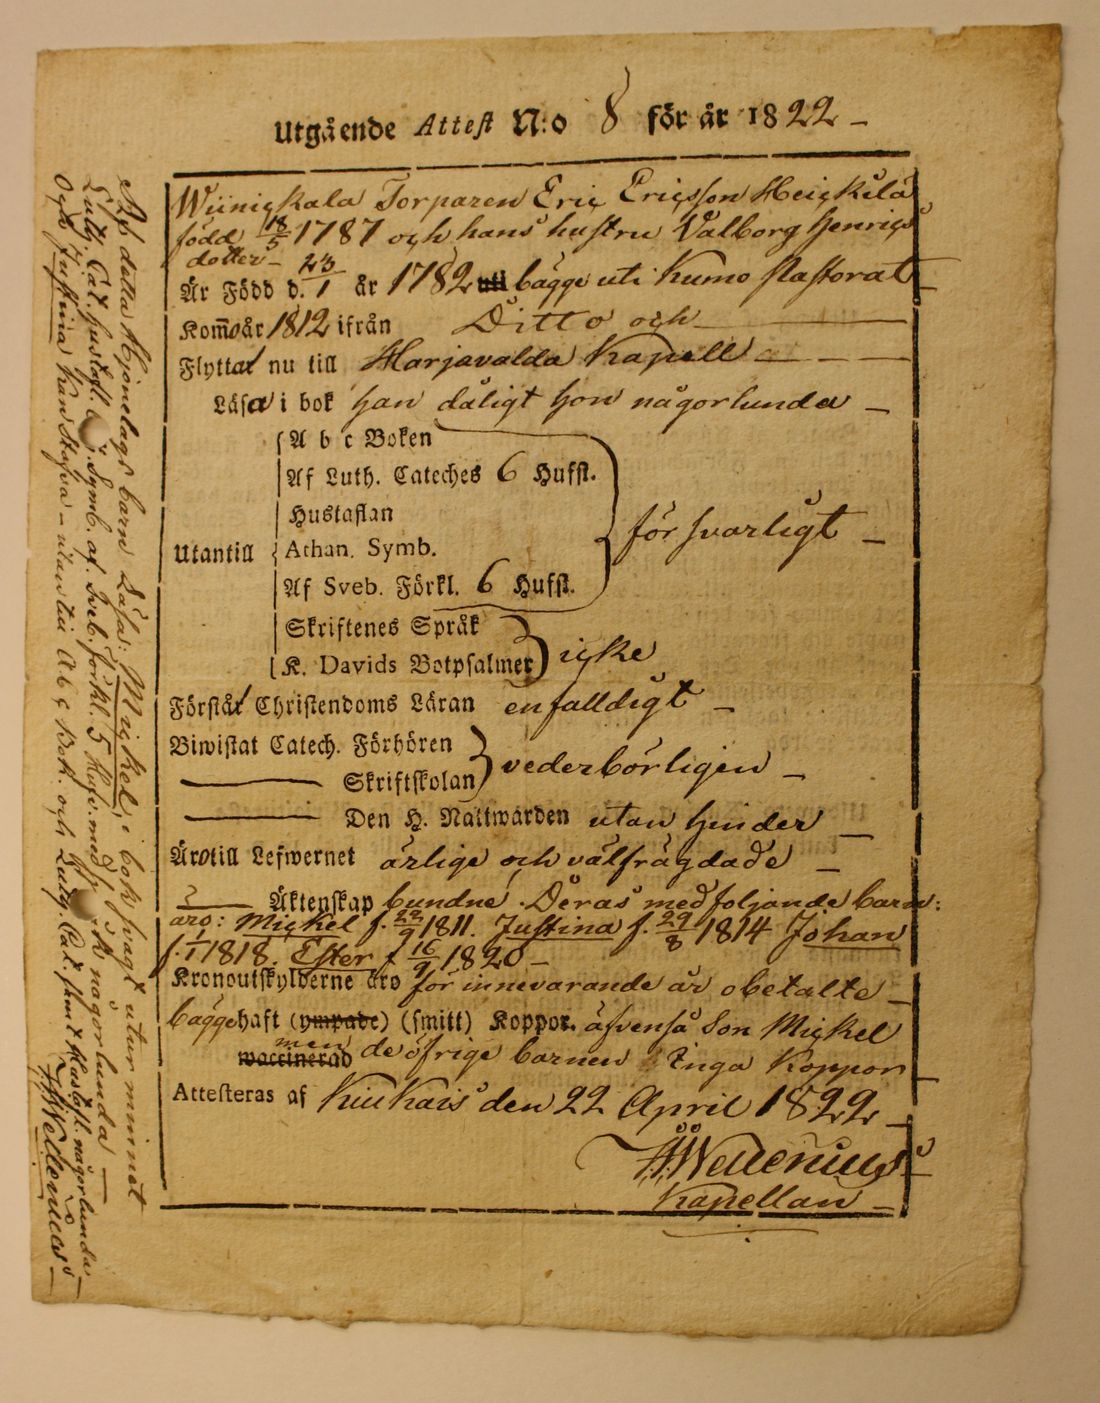 Utgående Attest N:o 8 för år 1822 –
Wiinickala Torparen Eric Ericsson Heickilä
född 18/5 1787 och hans hustru Valborg Henrics
dotter –
Är Född d. 23/1 år 1782 uti bägge uti Kumo Pastorat
Kom̅o år 1812 ifrån Ditto och
Flyttat nu till Harjavalda Kapell
Läsa i bok han dåligt hon någorlunda –
A b c Boken
Af Luth. Cateches 6 Hufst.
Hustaflan
Utantill
Athan. Symb.
försvarligt –
Af Sveb. Förkl. 6 Hufst.
Skriftenes Språk
K. Davids Botpsalmer
icke
Förstår Christendoms Läran enfalldigt –
Biwistat Catech. Förhören
Skriftskolan
vederbörligen –
Den H. Nattwarden utan hinder –
Äro till Lefwernet ärlige och välfrägdade –
Äktenskap bundne. Deras med följande barn:
äro: Mickel f. 22/9 1811. Justina f. 29/8 1814 Johan
f. 1/1 1818. Ester f 16/9 1820 –
Kronoutskylderne äro för innevarande år obetalte –
bägge haft (ympade) (smitt) Koppor. äfvenså Son Mickel
waccinerad men de öfrige barnen Inga Koppor
Attesteras af Kiukais den 22 April 1822 –
HWellenius
Kapellan –
Af detta Hjonelags barn Läsa: Mickel, i bok svagt utur minnet
Luth. Cat. Hustafl. Symb. af Sveb. förkl. 5 Huf. med någorlunda –
Och Justina kan Stafva – utantill A b c Bok. och Luth. Cat. samt Hustafl. någorlunda –
HWellenius –